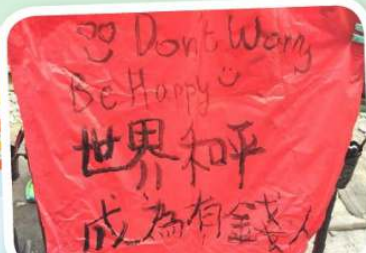 Don't Worry
Be Happy
世界和平
成為有錢人